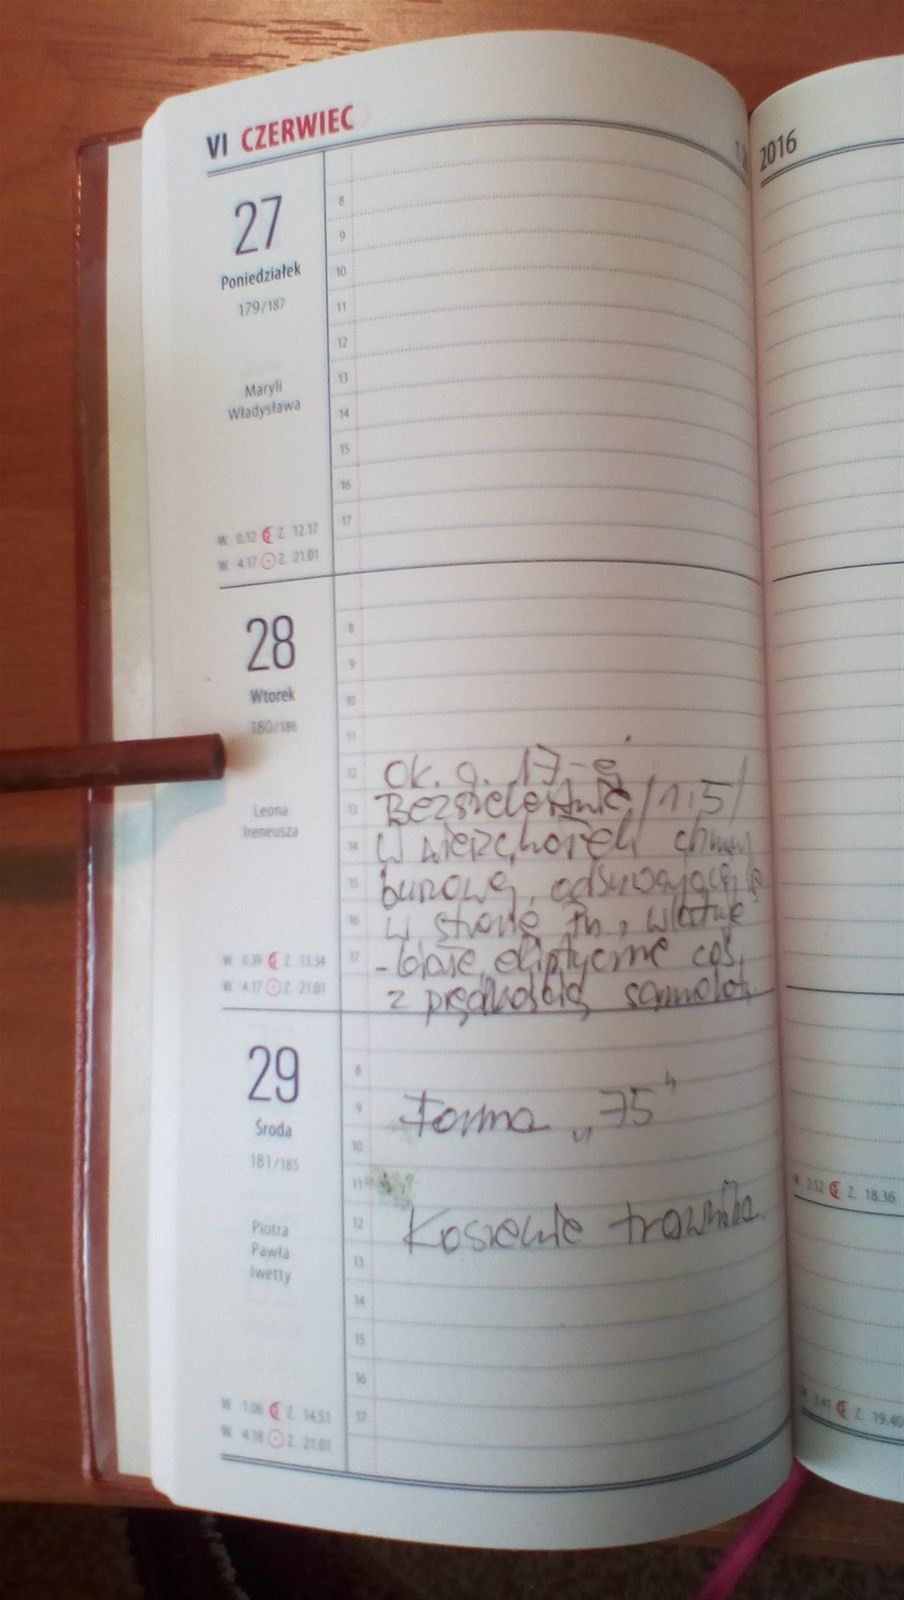 VI CZERWIEC
27
Poniedziałek
179/187
Maryli
Władysława
8
9
10
11
12
13
14
15
16
17
W. 0.12 Z. 12.17
W. 4.17 Z. 21.01
28
Wtorek
180/186
Leona
Ireneusza
8
9
10
11
12 ok. g. 17-ej
13 Bezszelestnie /1:5/
14 w wierzchołek chmury
15 burzowej, odsuwającej się
16 w stronę Pn., wlatuje
17 - białe, eliptyczne coś,
z prędkością samolotu.
W. 0.39 Z. 13.34
W. 4.17 Z. 21.01
29
Środa
181/185
Piotra
Pawła
Iwetty
8
9 Forma „75"
10
11
12 Koszenie trawnika.
13
14
15
16
17
W. 1.06 Z. 14.51
W. 4.18 Z. 21.01
2016
W. 2.52 Z. 18.36
3.41 Z. 19.40